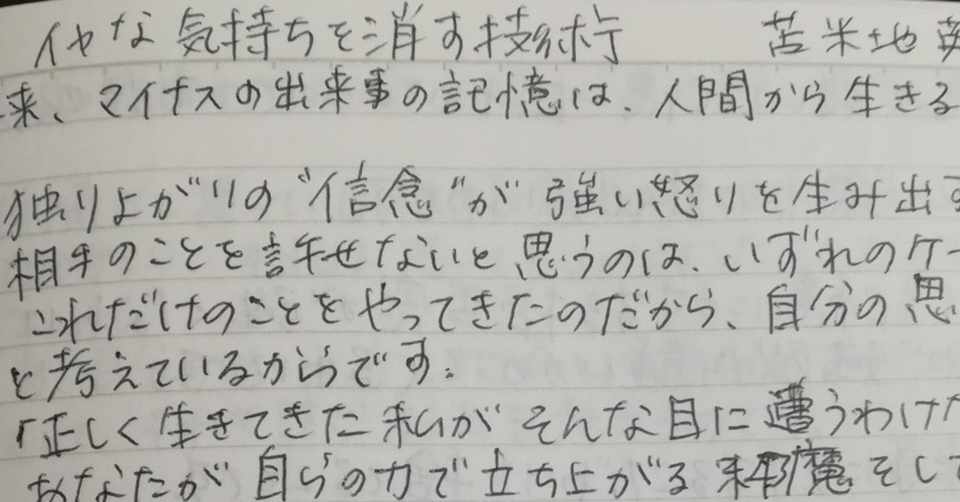 イヤな気持ちを消す技術 苫米地英
来、マイナスの出来事の記憶は、人間から生きる
独りよがりの"信念"が強い怒りを生み出す
相手のことを許せないと思うのは、いずれのケー
これだけのことをやってきたのだから、自分の思
と考えているからです。
「正しく生きてきた私がそんな目に遭うわけが
あなたが自らの力で立ち上がる 邪魔そして